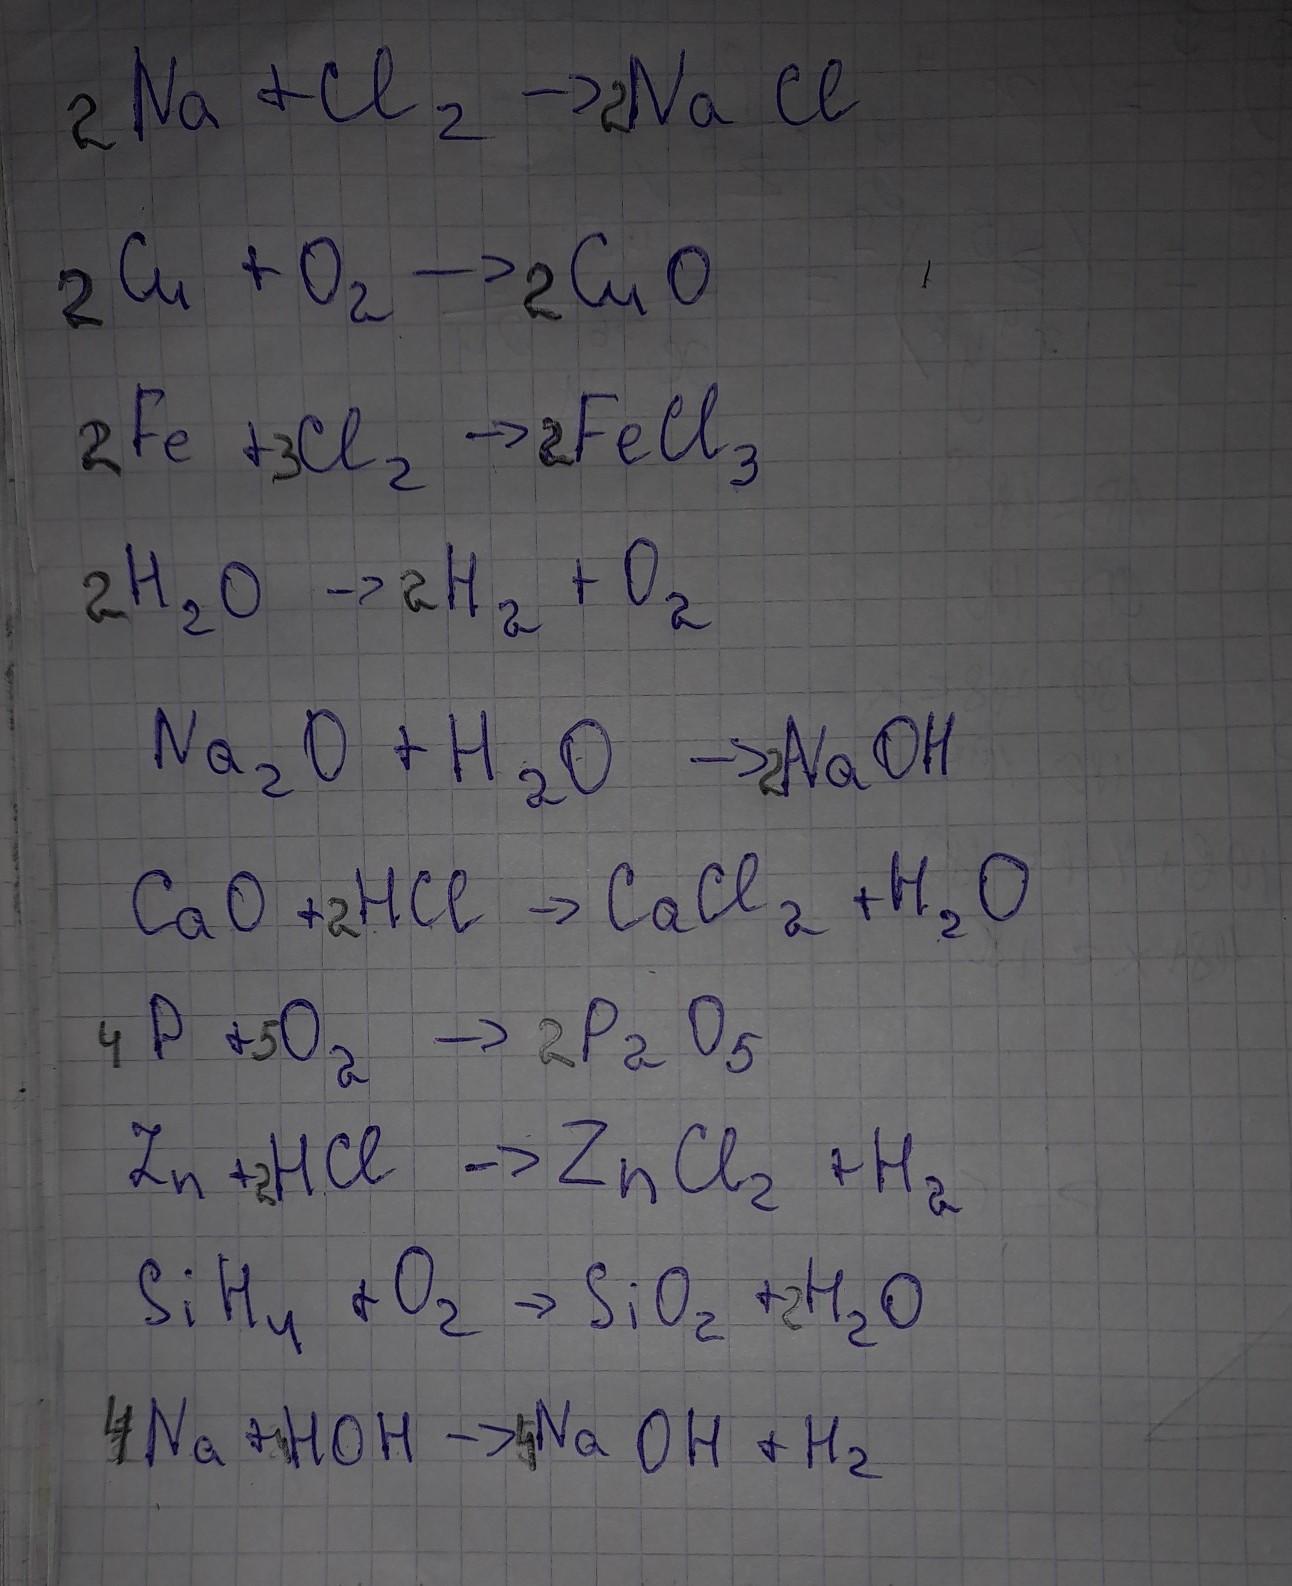 2Na + Cl2 -> 2NaCl
2Cu + O2 -> 2CuO
2Fe + 3Cl2 -> 2FeCl3
2H2O -> 2H2 + O2
Na2O + H2O -> 2NaOH
CaO + 2HCl -> CaCl2 + H2O
4P + 5O2 -> 2P2O5
Zn + 2HCl -> ZnCl2 + H2
SiH4 + O2 -> SiO2 + 2H2O
4Na + 4HOH -> 4NaOH + H2